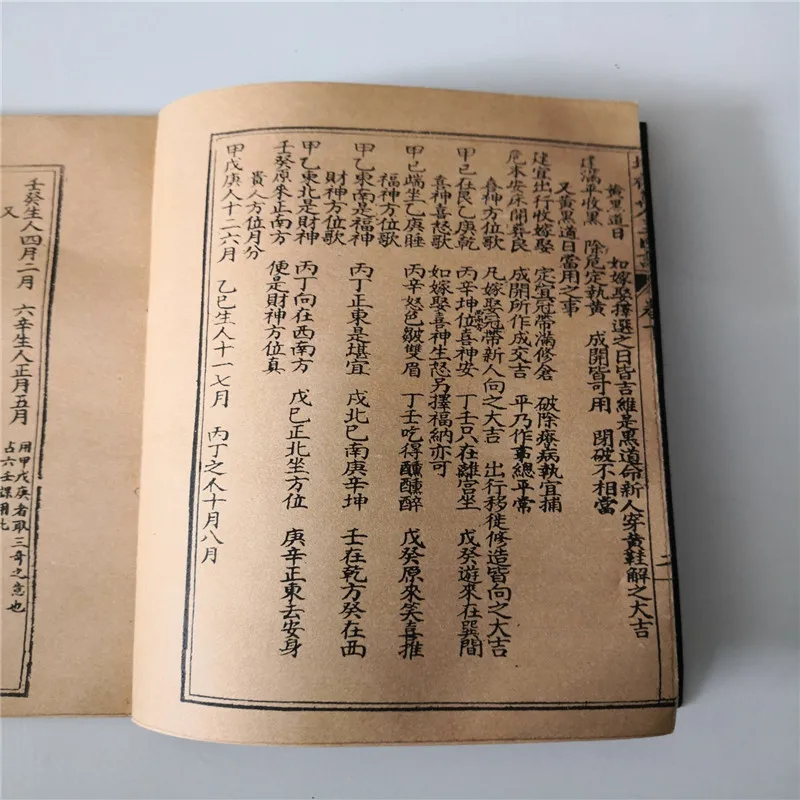 卷一
二
黃黑道日 如嫁娶擇選之日皆吉維是黑道命新人穿黃鞋解之大吉
建滿平收黑 除危定執黃 成開皆可用 閉破不相當
又黃黑道日當用之事
建宜出行收嫁娶 定宜冠帶滿修倉 破除療病執宜捕
危本安床開葬良 成開所作成交吉 平乃作事總平常
喜神方位歌 凡嫁娶冠帶新人向之大吉 出行移徙修造皆向之大吉
甲己在艮乙庚乾 丙辛坤位喜神安 丁壬只在離宮坐 戊癸遊來在巽間
喜神喜怒歌 如嫁娶喜神生怒另擇福納亦可
甲己端坐乙庚睡 丙辛怒色皺雙眉 丁壬吃得醺醺醉 戊癸原來笑喜推
福神方位歌
甲乙東南是福神 丙丁正東是堪宜 戊北己南庚辛坤 壬在乾方癸在西
財神方位歌
甲乙東北是財神 丙丁向在西南方 戊己正北坐方位 庚辛正東去安身
壬癸原來正南方 便是財神方位真
貴人方位月分
甲戊庚人十二六月 乙巳生人十一七月 丙丁之人十月八月
壬癸生人四月二月 六辛生人正月五月 用甲戊庚者取三奇之意也
占六壬課用
又